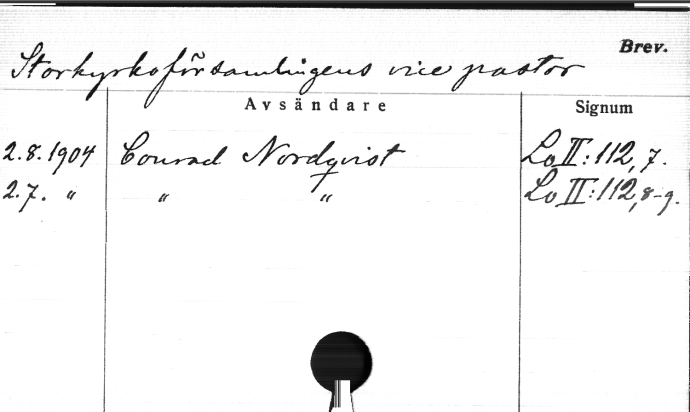 Brev.
Storkyrkoförsamlingens vice pastor
Avsändare Signum
2.8.1904 Conrad Nordqvist Lo II:112, 7.
2.7. " " " Lo II:112, 8-9.